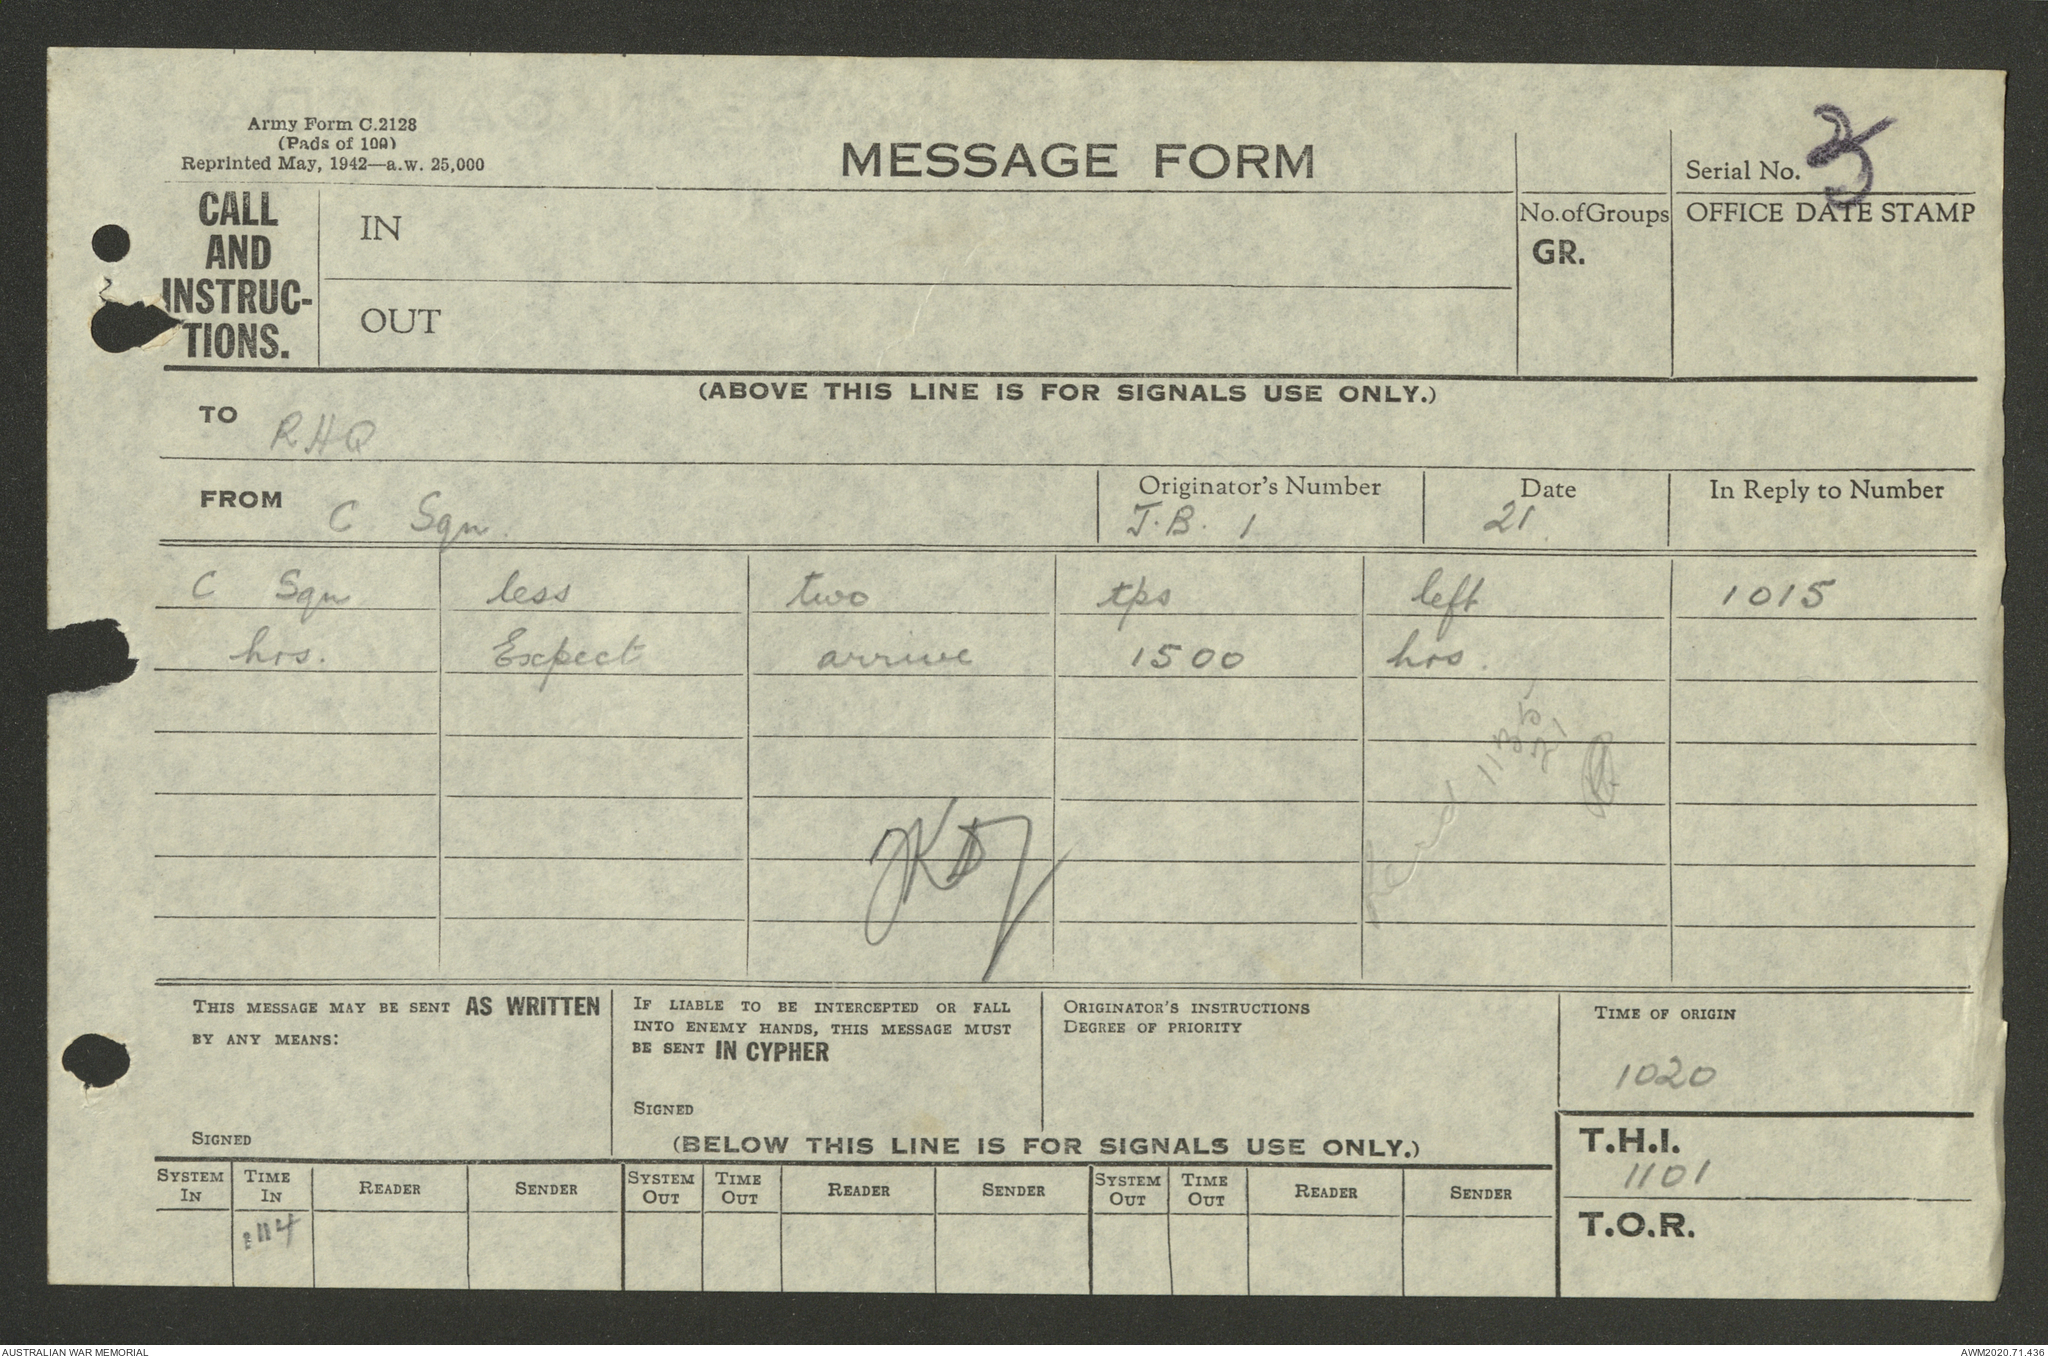 Army Form C.2128
(Pads of 100)
Reprinted May, 1942—a.w. 25,000
MESSAGE FORM
Serial No. 25
CALL AND INSTRUC-TIONS.
IN
OUT
No. of Groups
GR.
OFFICE DATE STAMP
(ABOVE THIS LINE IS FOR SIGNALS USE ONLY.)
TO RHQ
FROM C Sqn.
Originator's Number J.B. 1
Date 21
In Reply to Number
C Sqn less two tps left 1015
hrs. Expect arrive 1500 hrs.
1135
21
THIS MESSAGE MAY BE SENT AS WRITTEN
BY ANY MEANS:
SIGNED
IF LIABLE TO BE INTERCEPTED OR FALL
INTO ENEMY HANDS, THIS MESSAGE MUST
BE SENT IN CYPHER
SIGNED
ORIGINATOR'S INSTRUCTIONS
DEGREE OF PRIORITY
TIME OF ORIGIN
1020
(BELOW THIS LINE IS FOR SIGNALS USE ONLY.)
T.H.I.
1101
T.O.R.
SYSTEM IN TIME IN READER SENDER SYSTEM OUT TIME OUT READER SENDER SYSTEM OUT TIME OUT READER SENDER
AUSTRALIAN WAR MEMORIAL
AWM2020.71.436